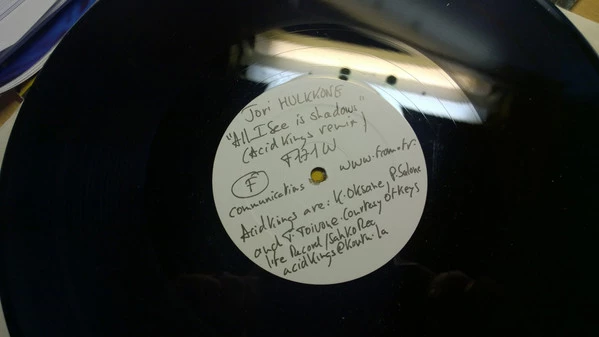 Jori HULKKONE
"All I See is shadows"
(Acid Kings remix)
F 
www.from.fr.
communications
Acid Kings are: K. Oksane, P. Salone
and J. Toivone. Courtesy of Keys
life Record/Sahko Rec
acidkings@